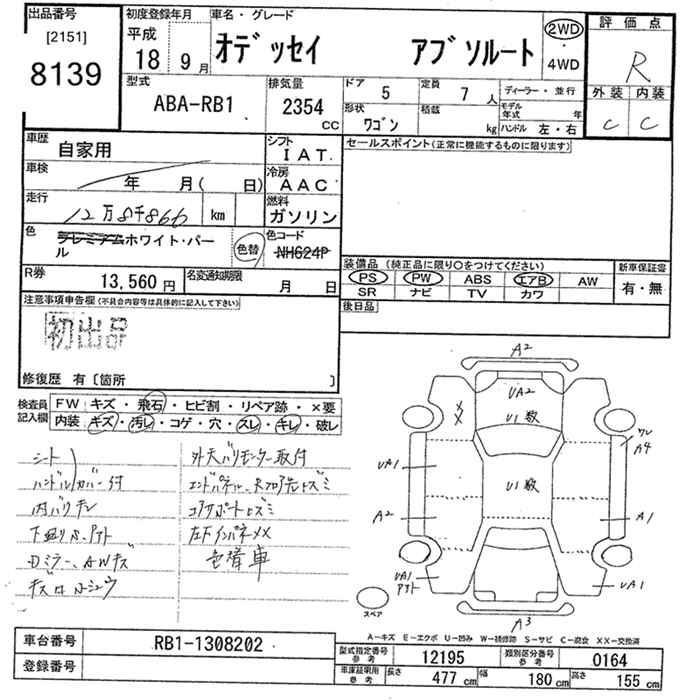 出品番号
[2151]
8139
初度登録年月
平成
18 9月
車名・グレード
オデッセイ アブソルート
2WD
・
4WD
評価点
R
外装 内装
C C
型式
ABA-RB1
排気量
2354
CC
ドア
5
定員
7 人
形状
ワゴン
積載
kg
ディーラー・並行
モデル
年式 年
ハンドル 左・右
車歴
自家用
シフト
IAT
車検
年 月( 日)
冷房
AAC
走行
12万8千866 km
燃料
ガソリン
色
プレミアムホワイト・パール
色替
色コード
NH624P
R券
13,560 円
名変通知期限
月 日
セールスポイント(正常に機能するものに限ります)
装備品(純正品に限り○をつけてください)
PS PW ABS エアB AW
SR ナビ TV カワ
新車保証書
有・無
後日品
注意事項申告欄(不具合内容等は具体的に記入して下さい)
初出品
修復歴 有〔箇所 〕
検査員
記入欄
FW キズ・飛石・ヒビ割・リペア跡・×要
内装 キズ・汚レ・コゲ・穴・スレ・キレ・破レ
シート
ハンドルカバー付
内バリキレ
Dミラー、AWキズ
外天バリモンター取付
エンドパネル、Rフロア先ヒズミ
コアサポートヒズミ
左下インパネXX
色替車
A2
UA2
XX
U1数
ワレ
A4
UA1
U1数
A2
A1
UA1
UA1
A3
スペア
A−キズ E−エクボ U−凹み W−補修跡 S−サビ C−腐食 XX−交換済
車台番号
RB1-1308202
登録番号
型式指定番号
参考
12195
類別区分番号
参考
0164
車庫証明用
参考
長さ
477 cm
幅
180 cm
高さ
155 cm